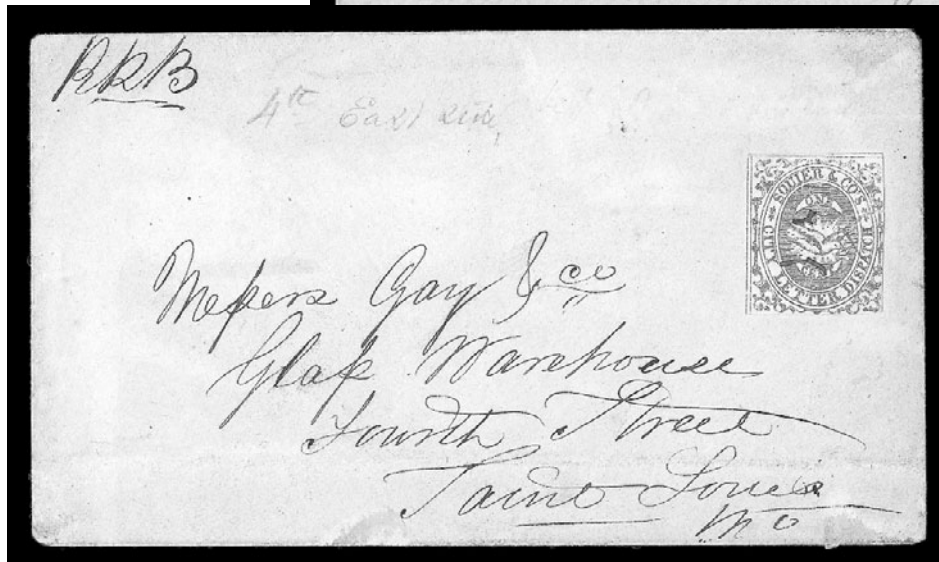 RRB
4th East side,
SQUIER & CO'S
CITY LETTER DISPACH
ONE
Messrs Gay & co
Glass Warehouse
Fourth Street
Saint Louis
Mo